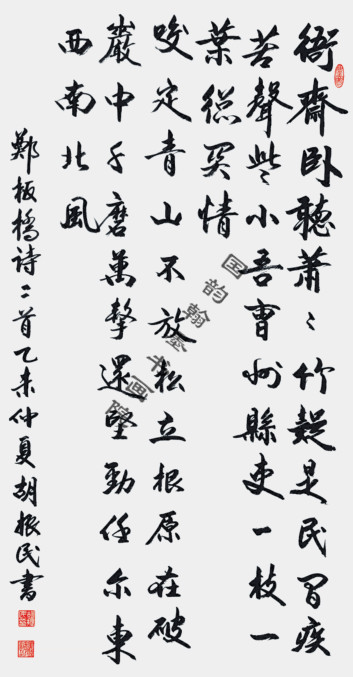 衙齋卧聽蕭〻竹疑是民間疾
苦聲些小吾曹州縣吏一枝一
葉總關情
咬定青山不放松立根原在破
巖中千磨萬擊還堅勁任尔東
西南北風
鄭板橋詩二首乙未仲夏胡振民書
国韵翰墨书画